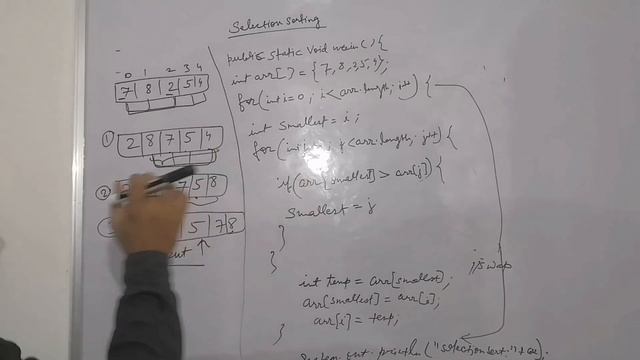 Selection Sorting
0 1 2 3 4
7 8 2 5 4
① 2 8 7 5 4
② 7 5 8
5 7 8
public static void main() {
int arr[] = {7, 8, 2, 5, 4};
for(int i=0; i<arr.length;
int smallest = i;
<arr.length;
if(arr[smallest] > arr[j]) {
smallest = j
}
}
swap
int temp = arr[smallest];
arr[smallest] = arr[i];
arr[i] = temp;
}